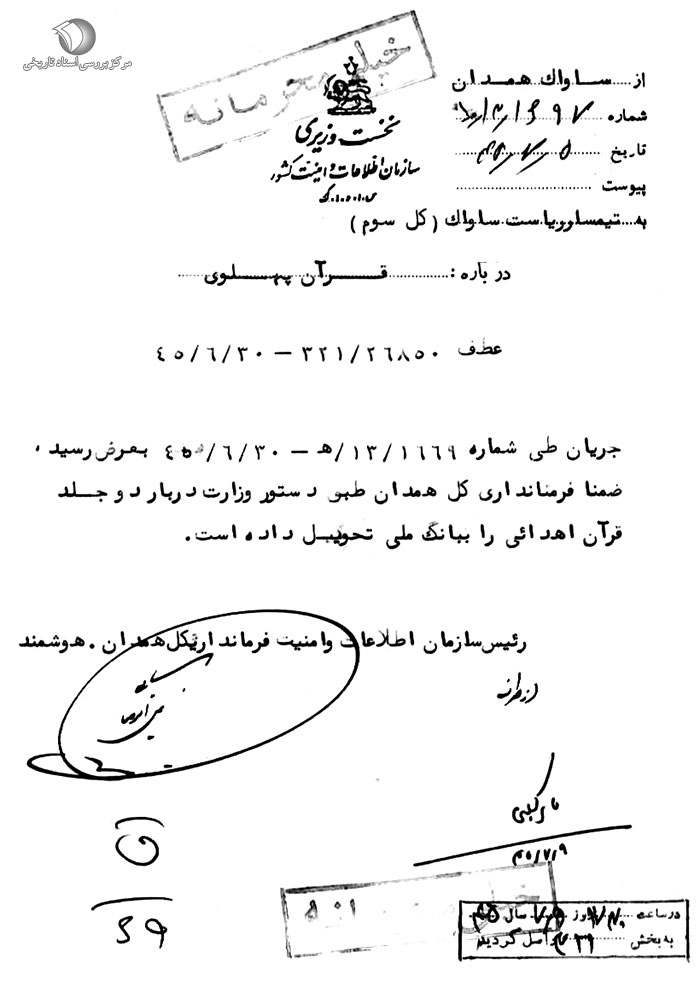 مرکز بررسی اسناد تاریخی
خیلی محرمانه
نخست وزیری
سازمان اطلاعات و امنیت کشور
س.ا.و.ا.ک
از ساواک همدان
شماره
تاریخ ۴۵/۷/۵
پیوست
به تیمسار ریاست ساواک (کل سوم)
درباره: قرآن پهلوی
عطف ۳۲۱/۲۶۸۵۰ – ۴۵/۶/۳۰
جریان طی شماره ۱۳/۱۶۶۹/ه – ۴۵/۶/۳۰ بعرض رسید،
ضمنا فرمانداری کل همدان طبق دستور وزارت دربار دو جلد
قرآن اهدائی را ببانک ملی تحویل داده است.
رئیس سازمان اطلاعات وامنیت فرمانداریکل همدان. هوشمند
از طرف
۴۵/۷/۹
خیلی محرمانه
در ساعت روز سال ۴۵
به بخش ۳۲۱ واصل گردید